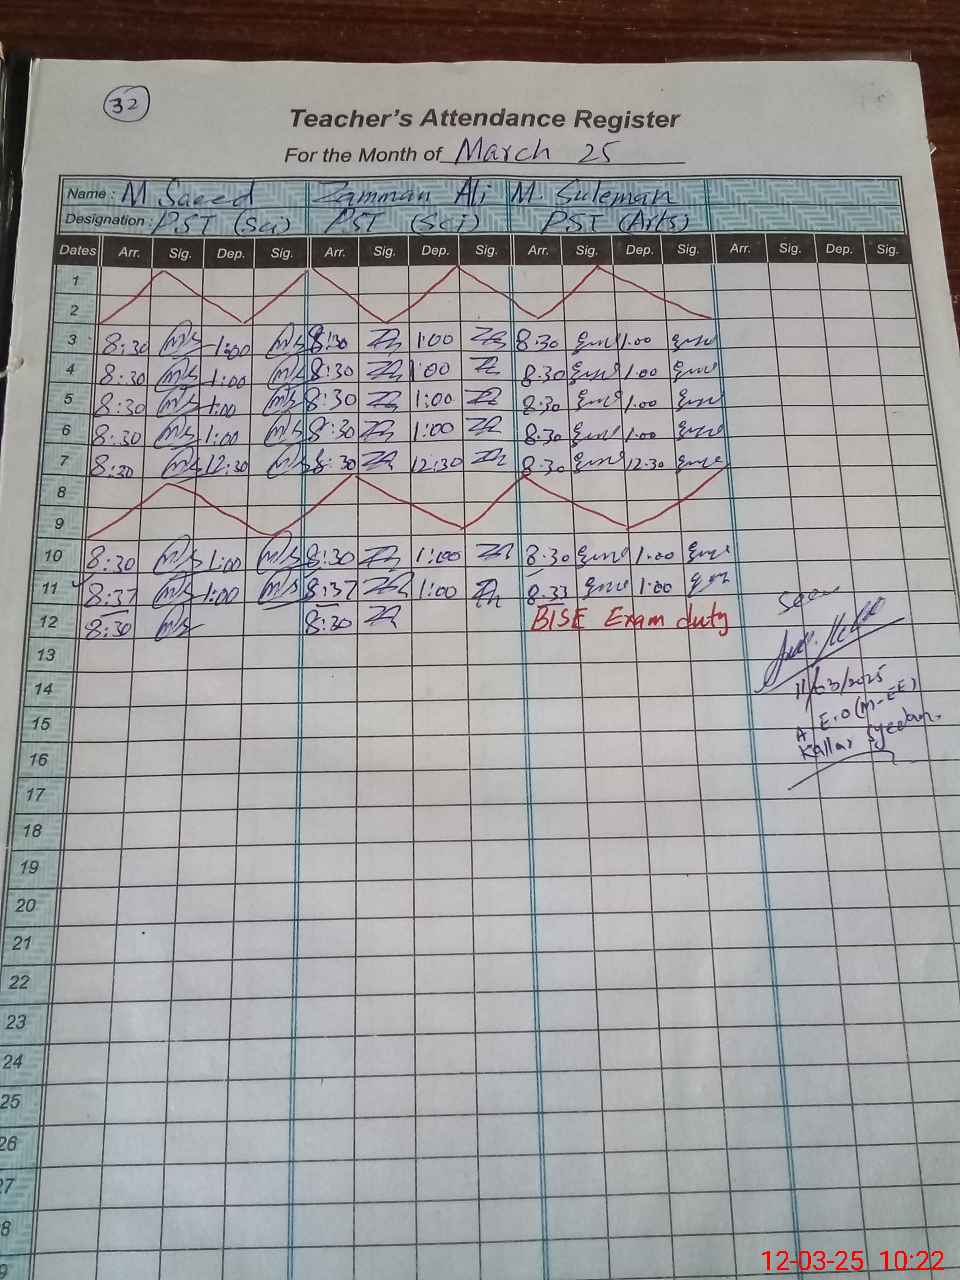 32
Teacher's Attendance Register
For the Month of March 25
Name : M Saeed Zamman Ali M. Suleman
Designation : PST (Sci) PST (Sci) PST (Arts)
Dates Arr. Sig. Dep. Sig. Arr. Sig. Dep. Sig. Arr. Sig. Dep. Sig. Arr. Sig. Dep. Sig.
1
2
3 8:30 1:00 8:30 1:00 8:30 1:00
4 8:30 1:00 8:30 1:00 8:30 1:00
5 8:30 1:00 8:30 1:00 8:30 1:00
6 8:30 1:00 8:30 1:00 8:30 1:00
7 8:30 12:30 8:30 12:30 8:30 12:30
8
9
10 8:30 1:00 8:30 1:00 8:30 1:00
11 8:37 1:00 8:37 1:00 8:33 1:00
12 8:30 8:30 BISE Exam duty
Seen
11/03/2025
A.E.O (M-EE)
Kallar Syedan.
13
14
15
16
17
18
19
20
21
22
23
24
25
26
7
8
9
12-03-25 10:22